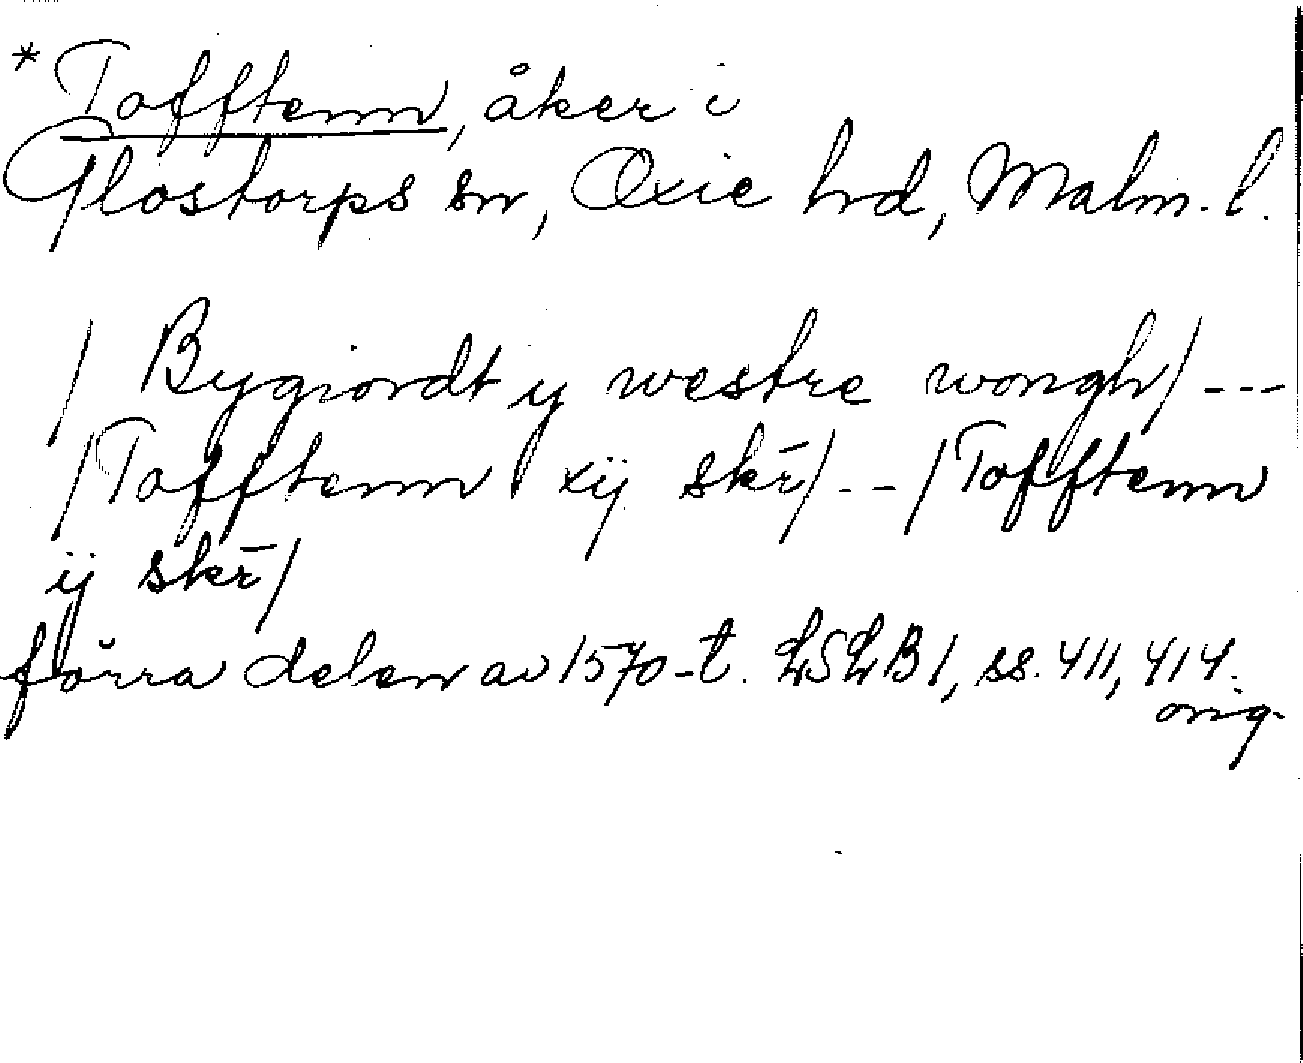 * Tofftenn, åker i
Glostorps sn, Oxie hd, Malm. l.
/ Bygiordt y westre wongh/ ---
/Tofftenn xij skr̄/ -- /Tofftenn
ij skr̄/
förra delen av 1570-t. LSLB1, ss. 411, 414.
orig.